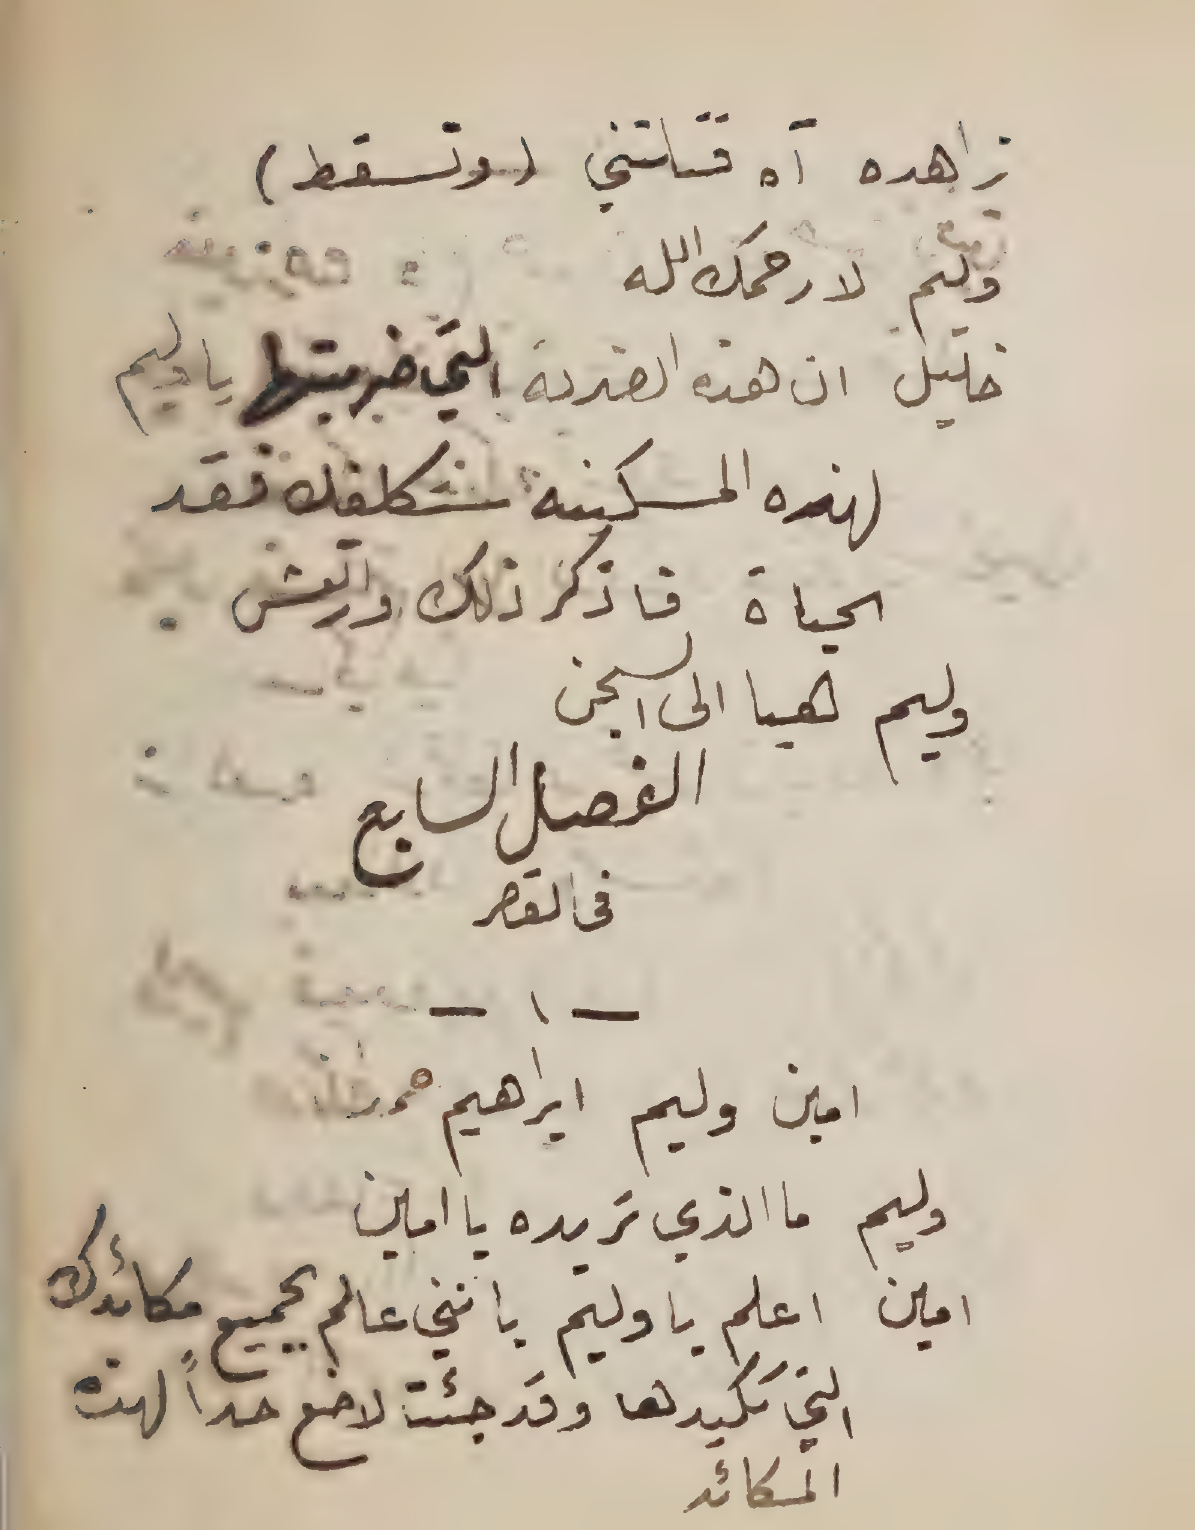 زاهده آه قتلتني (وتسقط)
وليم لا رحمك الله
خليل ان هذه الضربة التي ضربتها يا وليم
لهذه المسكينه ستكلفك فقد
الحياة فاذكر ذلك وارتعش .
وليم هيا الى السجن
الفصل السابع
في القصر
— ١ —
امين وليم ابراهيم
وليم ما الذي تريده يا امين
امين اعلم يا وليم بانني عالم بجميع مكائدك
التي تكيدها وقد جئت لاضع حداً لهذه
المكائد